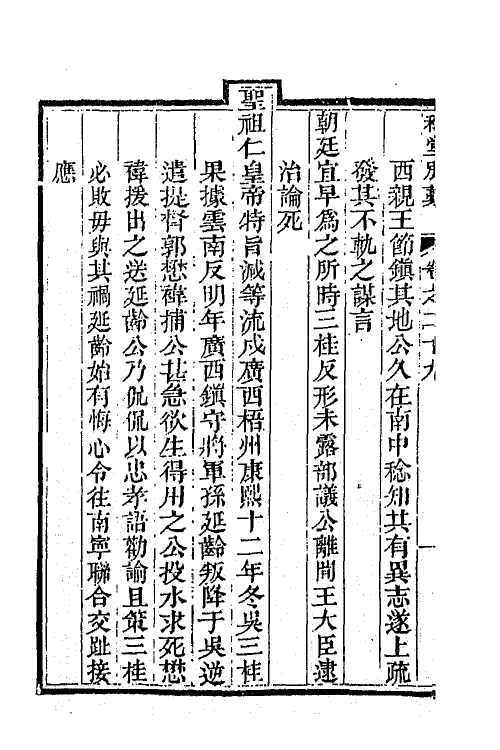 西親王節鎭其地公久在南中稔知其有異志遂上疏
發其不軌之謀言
朝廷宜早為之所時三桂反形未露部議公離間王大臣逮
治論死
聖祖仁皇帝特旨減等流戍廣西梧州康熙十二年冬吳三桂
果據雲南反明年廣西鎭守將軍孫延齡叛降于吳逆
遣提督郭懋褘捕公甚急欲生得用之公投水求死懋
褘援出之送延齡公乃侃侃以忠孝語勸諭且策三桂
必敗毋與其禍延齡始有悔心令往南寧聯合交趾接
應